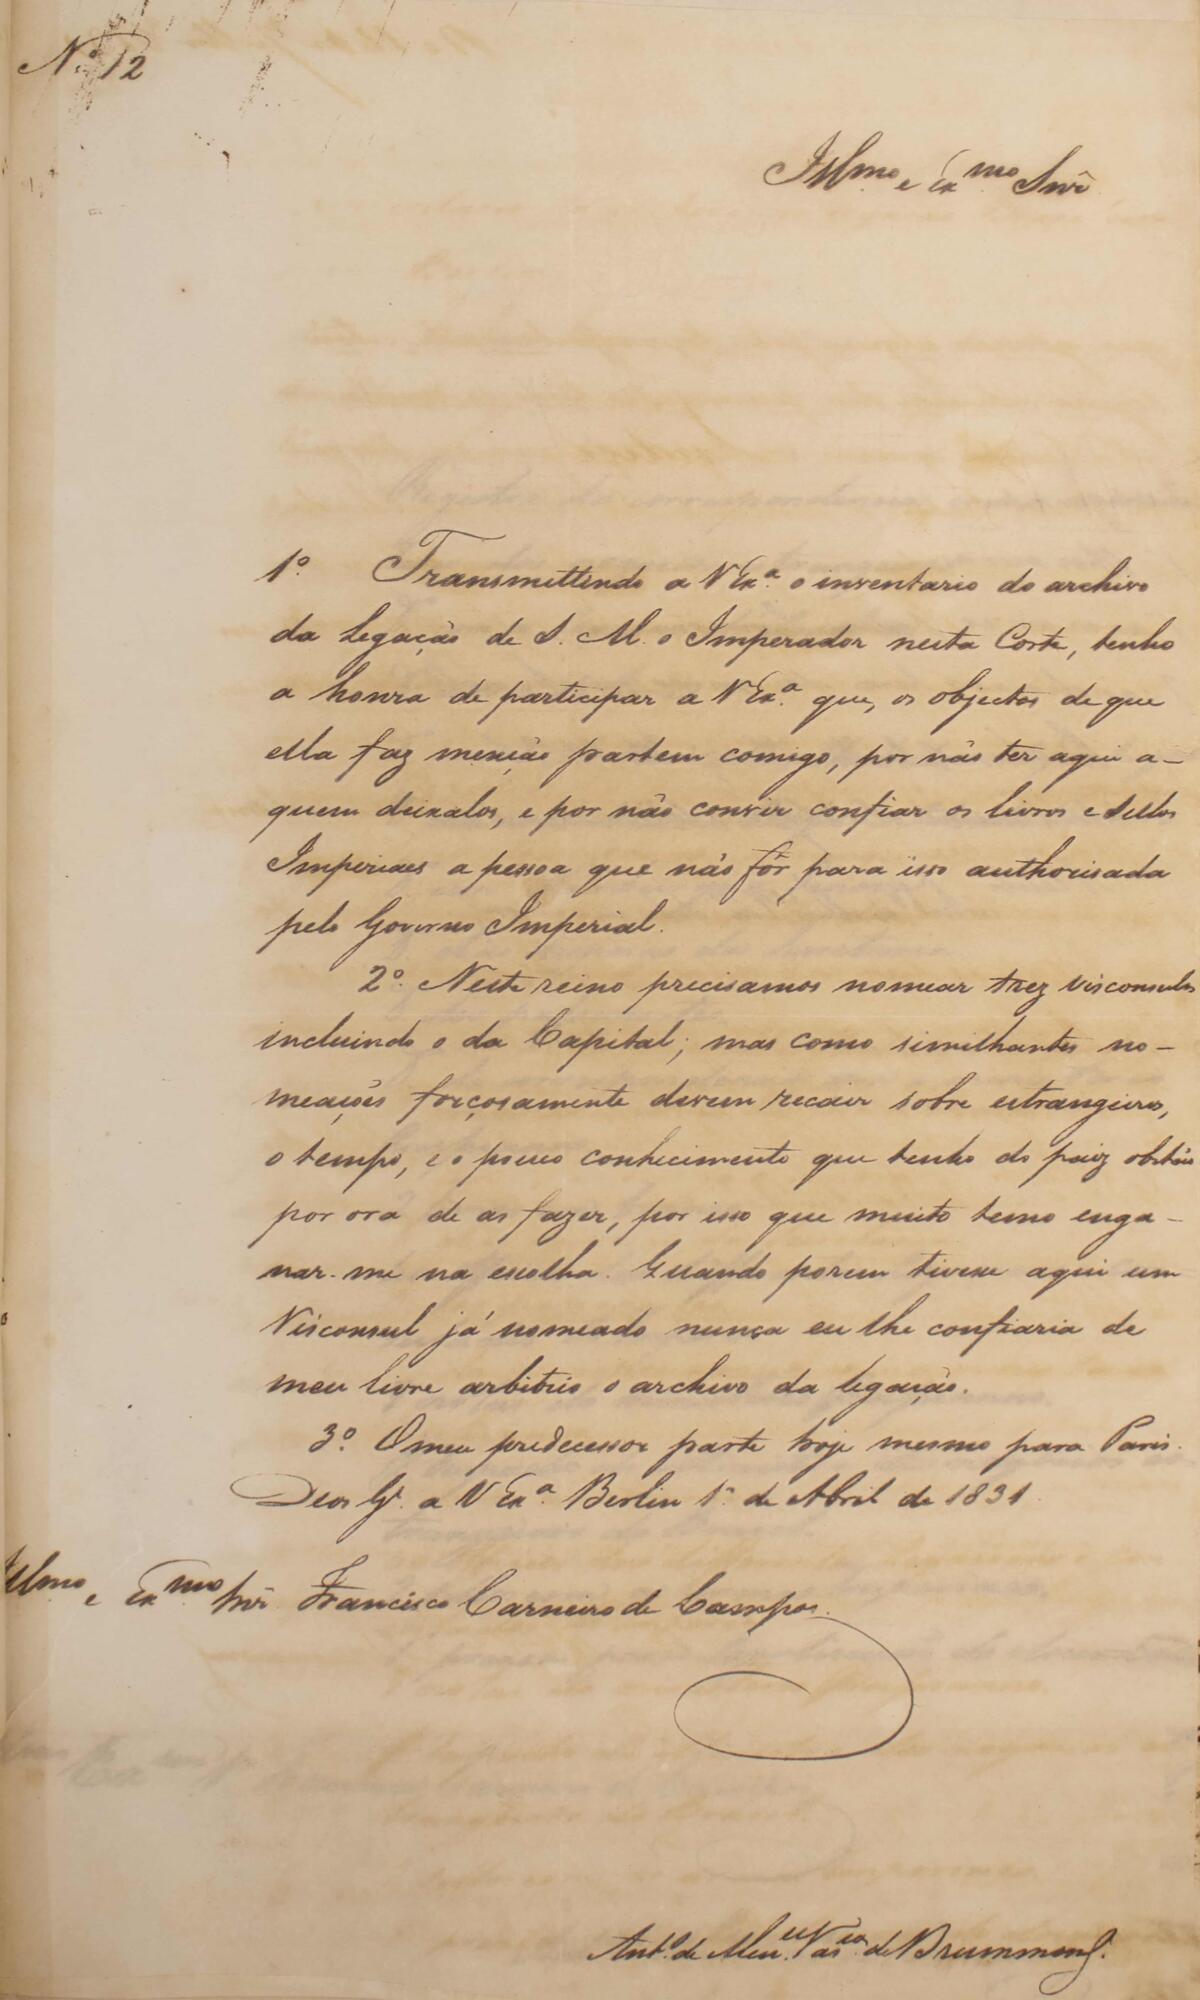 Nº 12
Illmo e Exmo Snr
1º. Transmittindo a V Exª. o inventario do archivo
da Legação de S. M. o Imperador nesta Corte, tenho
a honra de participar a V Exª. que, os objectos de que
ella faz menção partem comigo, por não ter aqui a-
quem deixalos, e por não convir confiar os livros e Sellos
Imperiaes a pessoa que não fôr para isso authorisada
pelo Governo Imperial.
2º. Neste reino precisamos nomear trez Visconsules
incluindo o da Capital; mas como similhantes no-
meações forçosamente devem recair sobre estrangeiros,
o tempo, e o pouco conhecimento que tenho do paiz obstão
por ora de as fazer, por isso que muito temo enga-
nar-me na escolha. Quando porem tivesse aqui um
Visconsul já nomeado nunca eu lhe confiaria de
meu livre arbitrio o archivo da legação.
3º. O meu predecessor parte hoje mesmo para Paris.
Deos Gᵉ. a V Exª. Berlin 1º de Abril de 1831
Illmo e Exmo Snr Francisco Carneiro de Campos.
Antº. de Menᵉˢ Vasᶜᵒˢ de Drummond.